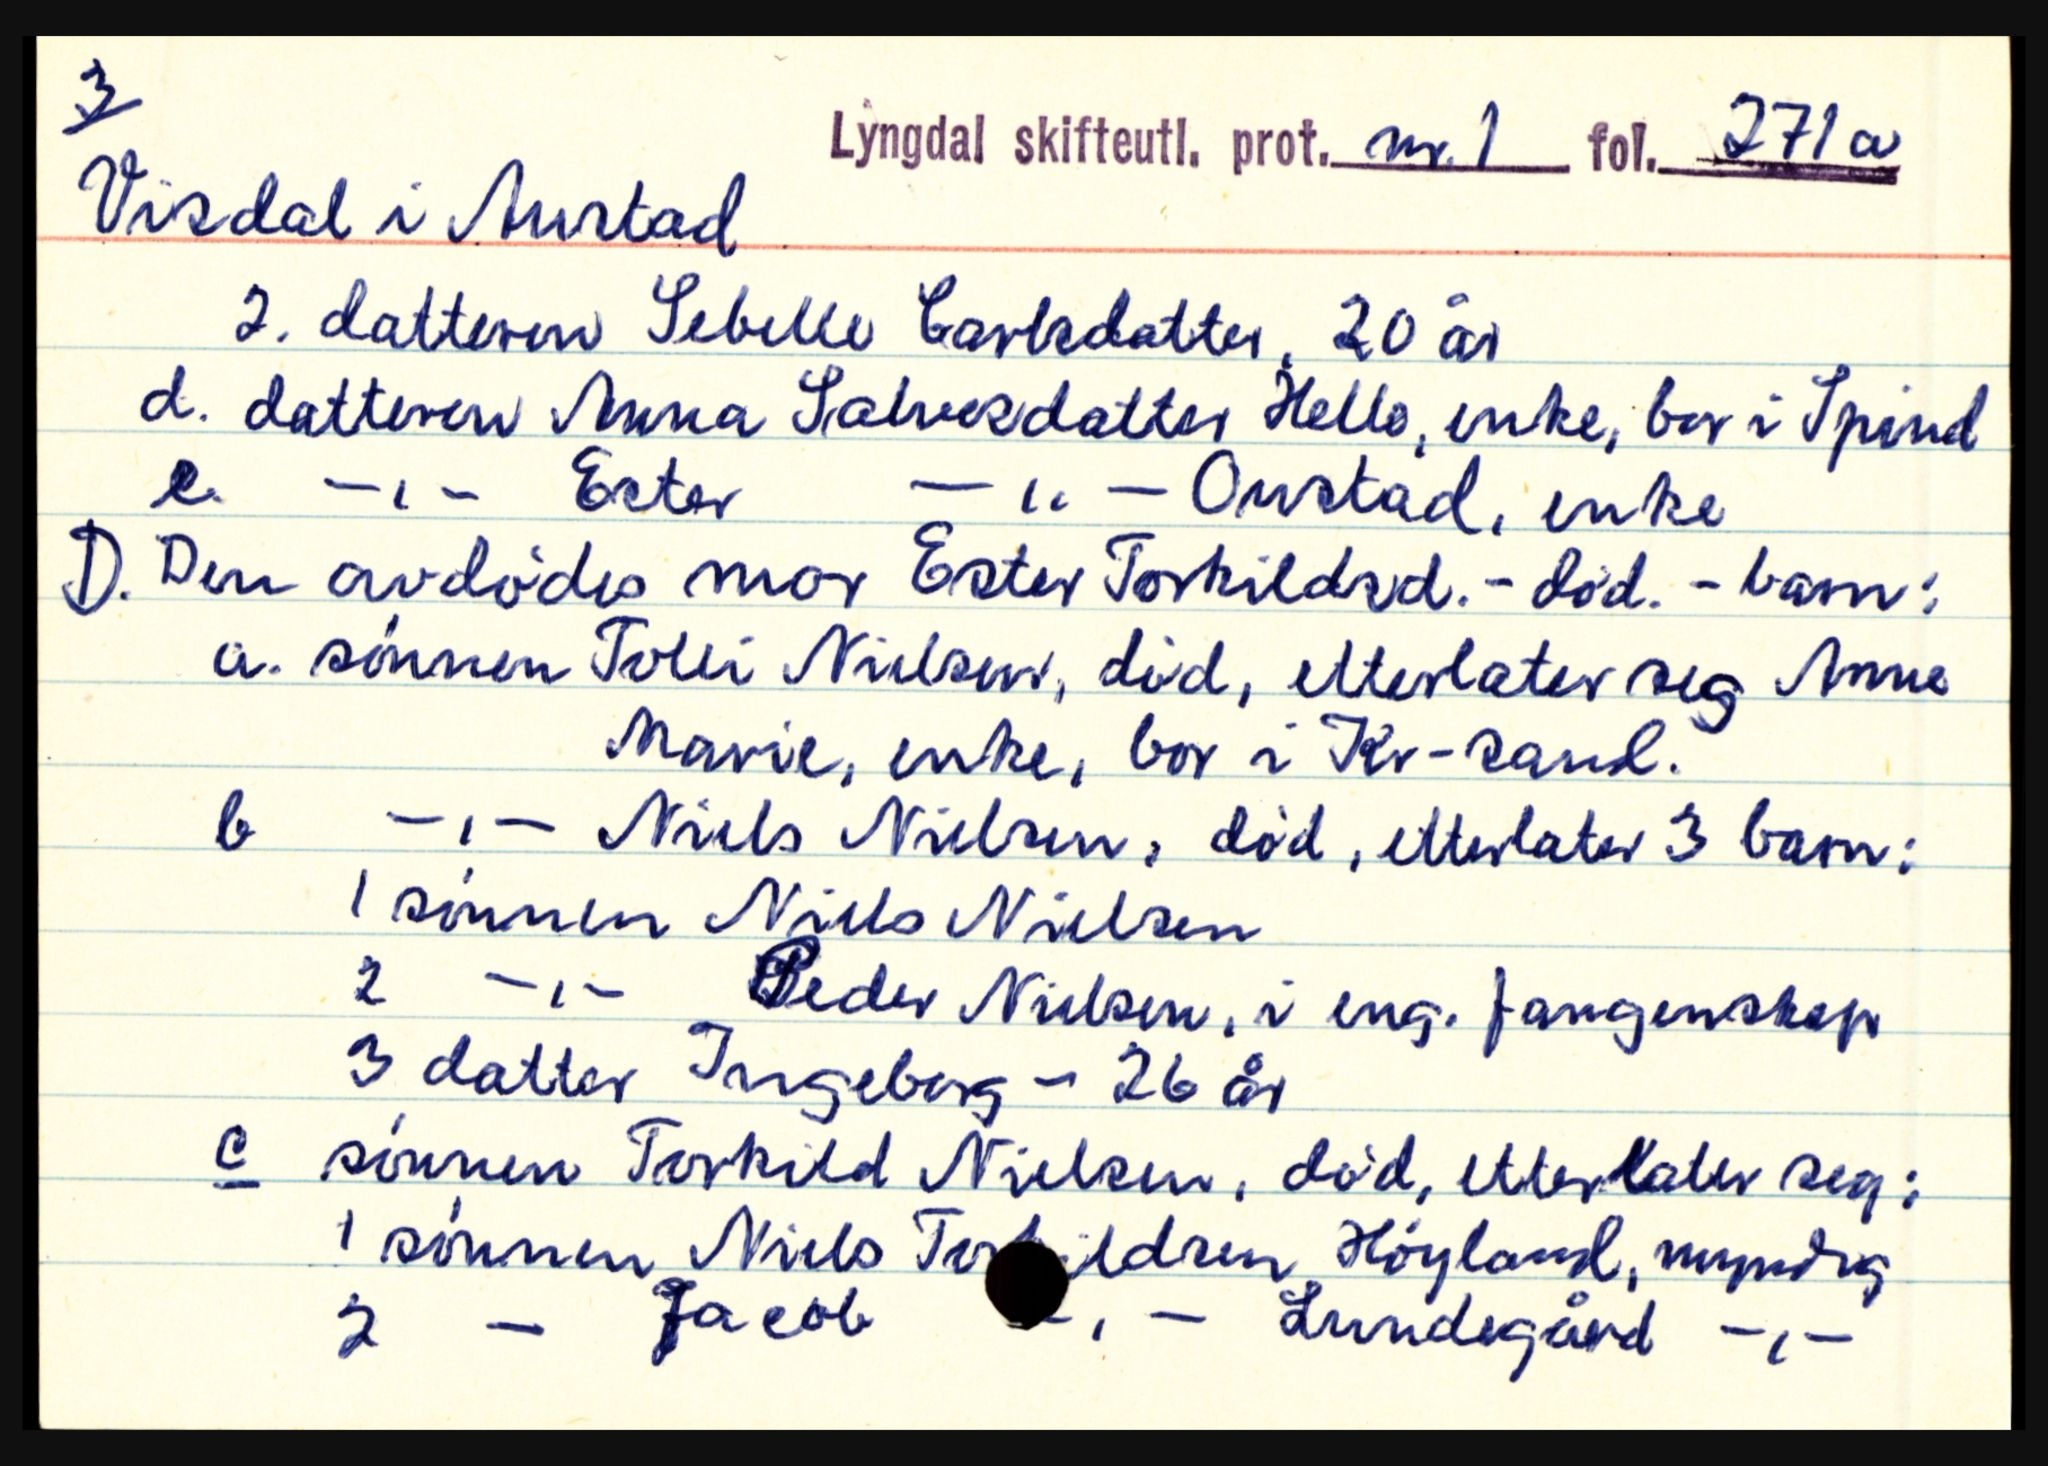 3
Lyngdal skifteutl. prot. nr. 1 fol. 271a
Visdal i Austad
2. datteren Sebelle Carlsdatter, 20 år
d. datteren Anna Salvesdatter Helle, enke, bor i Spind
e. -,- Ester -,,- Oustad, enke
D. Den avdødes mor Ester Torkildsd. - død. - barn:
a. sønnen Tolli Nielsen, død, etterlater seg Anne
Marie, enke, bor i Kr-sand.
b -,- Niels Nielsen, død, etterlater 3 barn:
1 sønnen Niels Nielsen
2 -,- Peder Nielsen, i eng. fangenskap
3 datter Ingeborg - 26 år
c sønnen Torkild Nielsen, død, etterlater seg:
1 sønnen Niels Torkildsen Høyland, myndig
2 - Jacob -,- Lundegård -,-